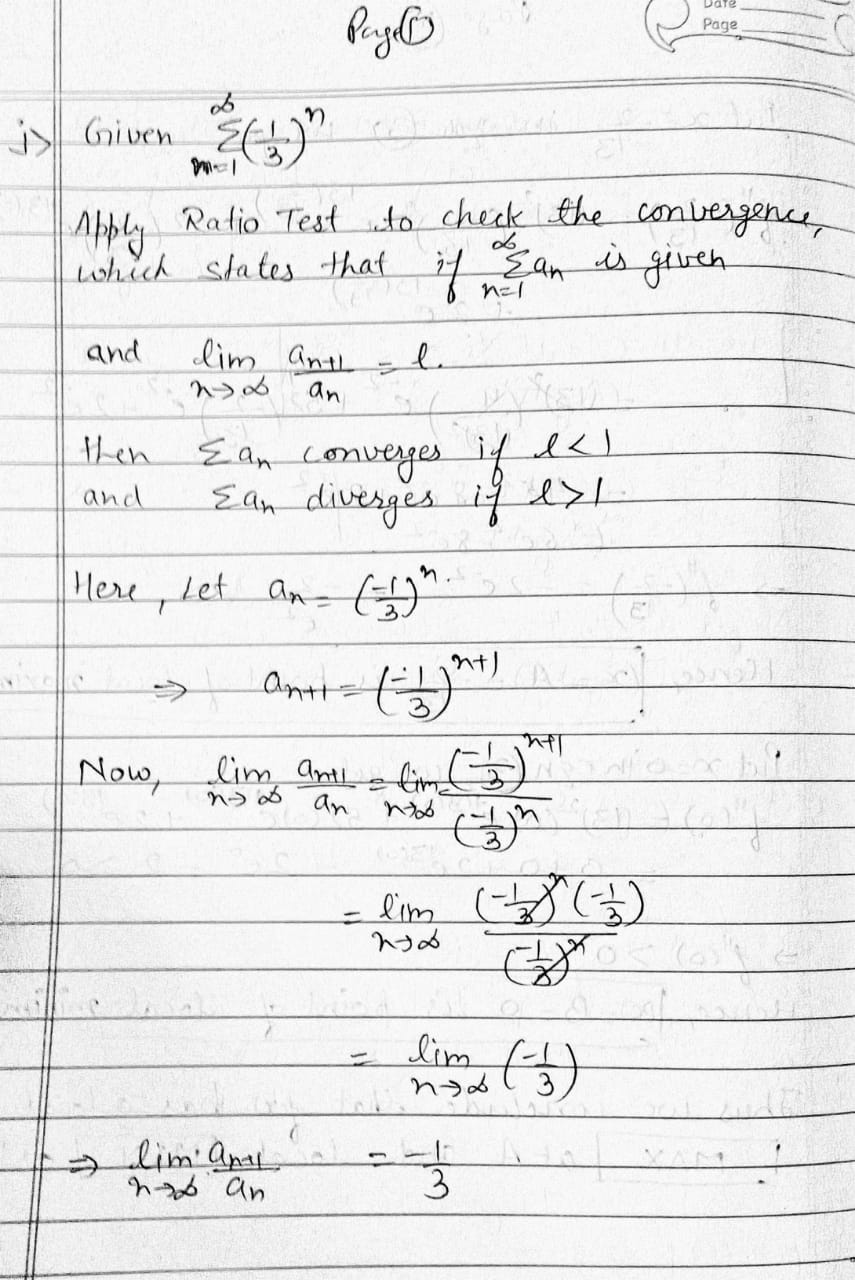 Page ①
Date
Page
i> Given ∞Σn=1 (-1/3)^n
Apply Ratio Test to check the convergence,
which states that if ∞Σn=1 an is given
and lim n→∞ an+1/an = l.
then Σan converges if l<1
and Σan diverges if l>1
Here, Let an = (-1/3)^n.
⇒ an+1 = (-1/3)^n+1
Now, lim n→∞ an+1/an = lim n→∞ (-1/3)^n+1/(-1/3)^n
= lim n→∞ (-1/3)^n (-1/3)/(-1/3)^n
= lim n→∞ (-1/3)
⇒ lim n→∞ an+1/an = -1/3